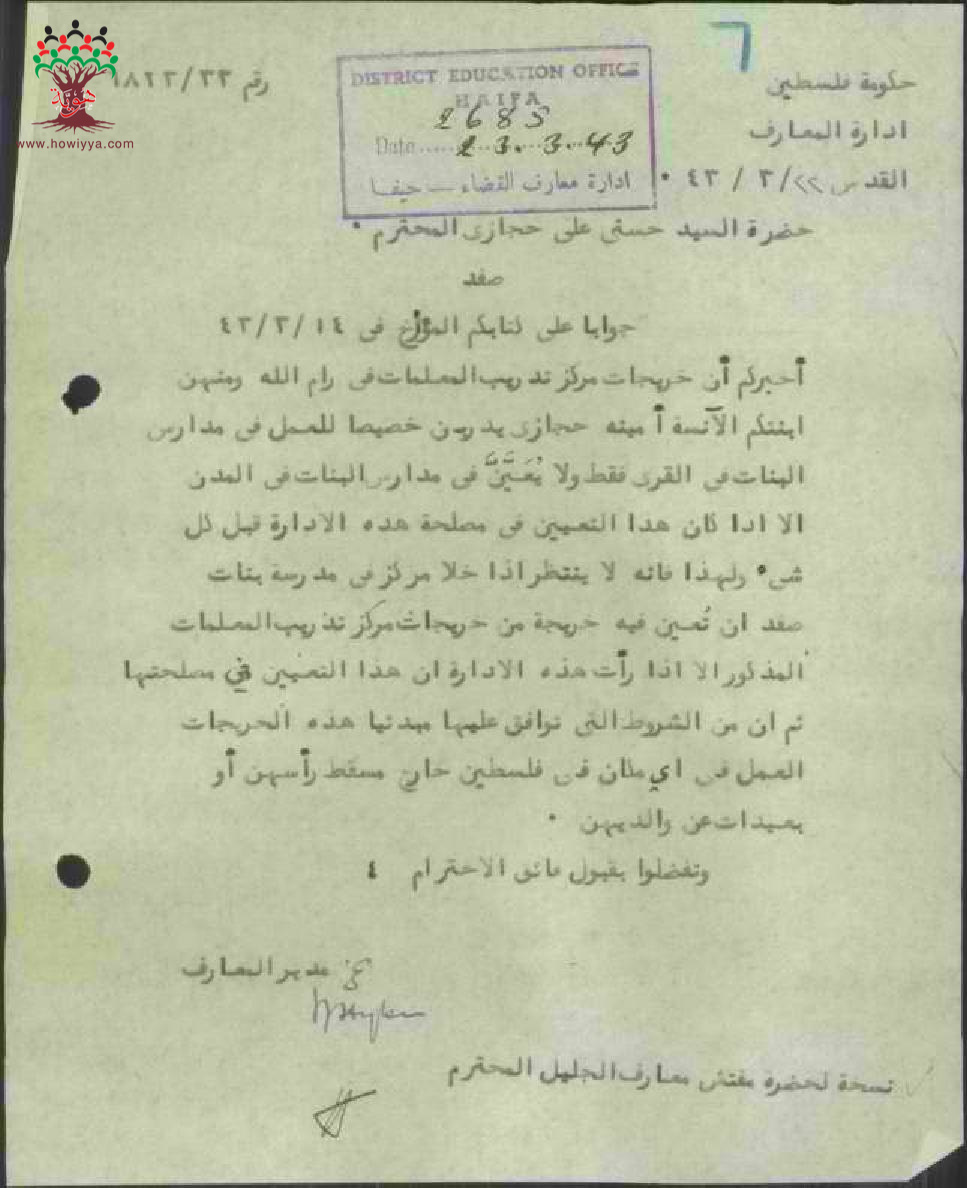 حكومة فلسطين
ادارة المعارف
القدس ٢٢/ ٣ / ٤٣ ٠
رقم ١٨٢٢/٣٣
DISTRICT EDUCATION OFFICE
HAIFA
2685
Date..... 23.3.43
ادارة معارف القضاء — حيفا
www.howiyya.com
هوية
حضرة السيد حسني علي حجازي المحترم ٠
صفد
جوابا على كتابكم المؤرخ في ١٤ /٣/ ٤٣
أخبركم أن خريجات مركز تدريب المعلمات في رام الله ومنهن
ابنتكم الآنسة أمينه حجازي يدربن خصيصا للعمل في مدارس
البنات في القرى فقط ولا يُعَيَّنَّ في مدارس البنات في المدن
الا اذا كان هذا التعيين في مصلحة هذه الادارة قبل كل
شيء ولهذا فانه لا ينتظر اذا خلا مركز في مدرسة بنات
صفد ان تُعين فيه خريجة من خريجات مركز تدريب المعلمات
المذكور الا اذا رأت هذه الادارة ان هذا التعيين في مصلحتها
ثم ان من الشروط التي توافق عليها مبدئيا هذه الخريجات
العمل في اي مكان في فلسطين خارج مسقط رأسهن أو
بعيدات عن والديهن ٠
وتفضلوا بقبول فائق الاحترام ٤
عن مدير المعارف
نسخة لحضرة مفتش معارف الجليل المحترم